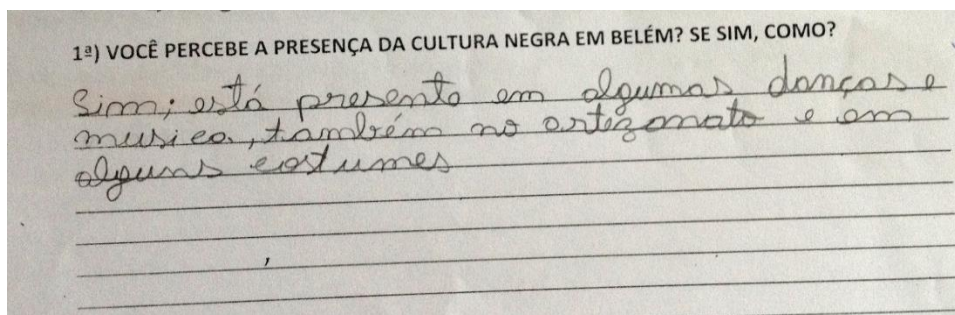 1ª) VOCÊ PERCEBE A PRESENÇA DA CULTURA NEGRA EM BELÉM? SE SIM, COMO?
Sim; está presente em algumas danças e
musica, também no artezanato e em
alguns costumes